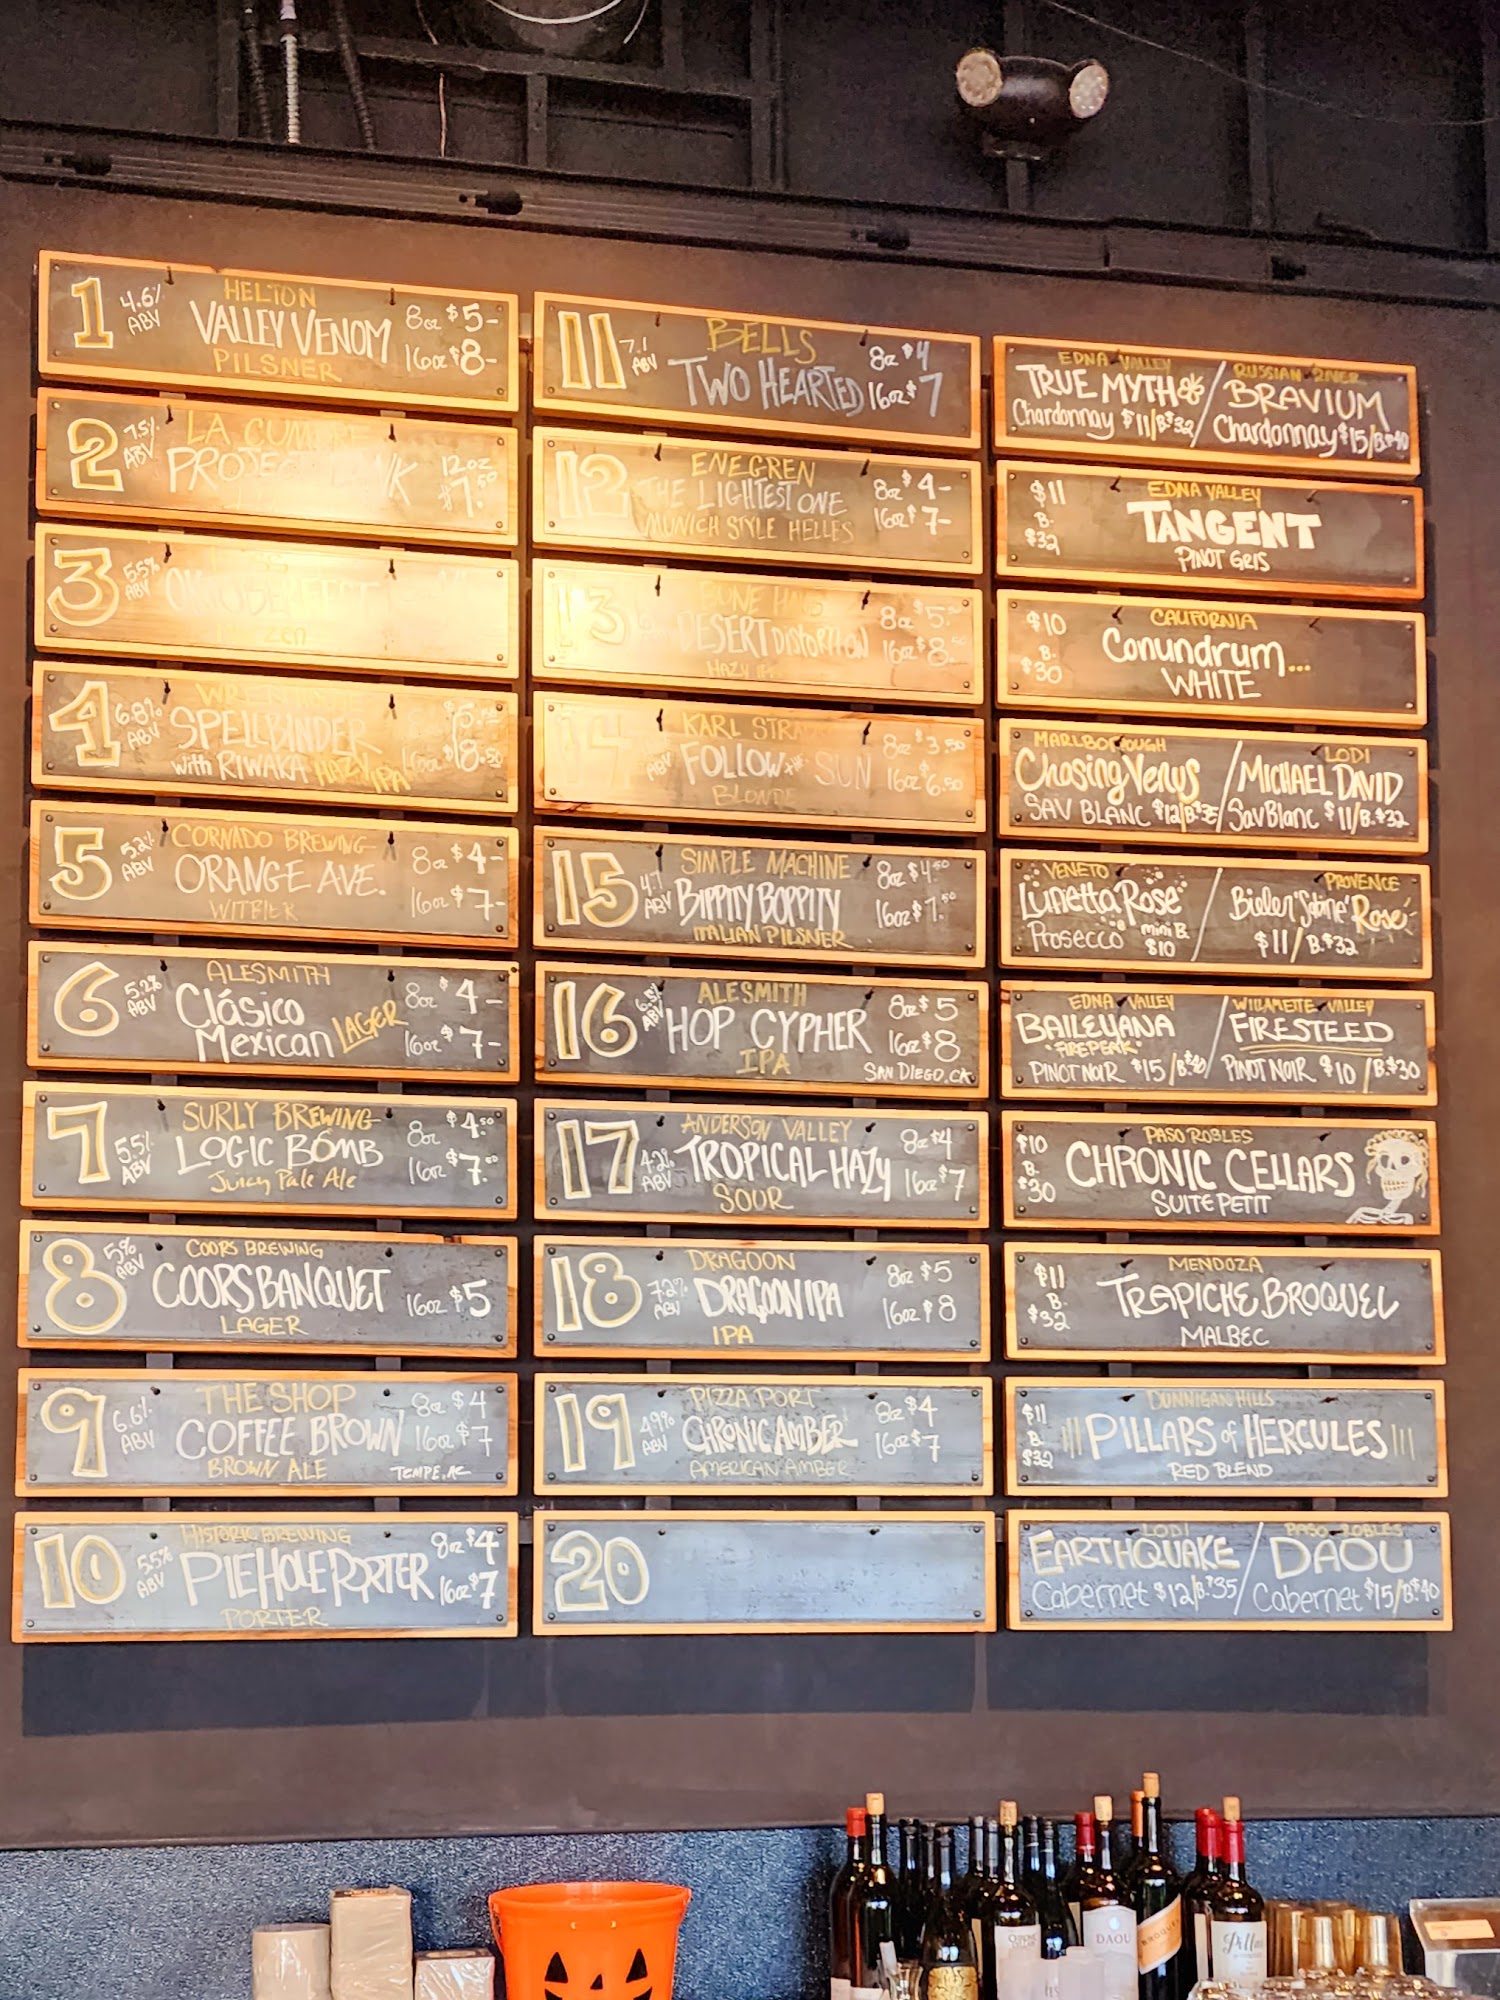 1
4.6%
ABV
HELTON
VALLEY VENOM
PILSNER
8oz $5-
16oz $8-
2
7.5%
ABV
LA CUMBRE
PROJECT DANK
12oz
$7.50
3
5.5%
ABV
OKTOBERFEST
4
6.8%
ABV
SPELLBINDER
with RIWAKA HAZY IPA
16oz $8.50
5
5.2%
ABV
CORNADO BREWING
ORANGE AVE.
WITBIER
8oz $4-
16oz $7-
6
5.2%
ABV
ALESMITH
Clásico
Mexican LAGER
8oz $4-
16oz $7-
7
5.5%
ABV
SURLY BREWING
LOGIC BOMB
Juicy Pale Ale
8oz $4.50
16oz $7.50
8
5%
ABV
COORS BREWING
COORS BANQUET
LAGER
16oz $5
9
6.6%
ABV
THE SHOP
COFFEE BROWN
BROWN ALE
8oz $4
16oz $7
TEMPE, AZ
10
5.5%
ABV
HISTORIC BREWING
PIEHOLE PORTER
PORTER
8oz $4
16oz $7
11
7.1
ABV
BELLS
TWO HEARTED
8oz $4
16oz $7
12
ENEGREN
THE LIGHTEST ONE
MUNICH STYLE HELLES
8oz $4-
16oz $7-
13
BONE HAUS
DESERT DISTORTION
HAZY IPA
8oz $5.
16oz $8.
14
ABV
KARL STRAUSS
FOLLOW THE SUN
BLONDE
8oz $3.50
16oz $6.50
15
4.7
ABV
SIMPLE MACHINE
BIPPITY BOPPITY
ITALIAN PILSNER
8oz $4.50
16oz $7.50
16
6.5%
ABV
ALESMITH
HOP CYPHER
IPA
8oz $5
16oz $8
SAN DIEGO, CA
17
4.2%
ABV
ANDERSON VALLEY
TROPICAL HAZY
SOUR
8oz $4
16oz $7
18
7.2%
ABV
DRAGOON
DRAGOON IPA
IPA
8oz $5
16oz $8
19
4.9%
ABV
PIZZA PORT
CHRONIC AMBER
AMERICAN AMBER
8oz $4
16oz $7
20
EDNA VALLEY
TRUE MYTH
Chardonnay $11/B.$32
/
RUSSIAN RIVER
BRAVIUM
Chardonnay $15/B.$40
$11
B.
$32
EDNA VALLEY
TANGENT
PINOT GRIS
$10
B.
$30
CALIFORNIA
Conundrum...
WHITE
MARLBOROUGH
Chasing Venus
SAV BLANC $12/B.$35
/
LODI
MICHAEL DAVID
Sav Blanc $11/B.$32
VENETO
Lunetta Rose
Prosecco mini B.
$10
/
PROVENCE
Bieler 'Sabine' Rosé
$11/B.$32
EDNA VALLEY
BAILEYANA
"FIREPEAK"
PINOT NOIR $15/B.$40
/
WILLAMETTE VALLEY
FIRESTEED
PINOT NOIR $10/B.$30
$10
B.
$30
PASO ROBLES
CHRONIC CELLARS
SUITE PETIT
$11
B.
$32
MENDOZA
TRAPICHE BROQUEL
MALBEC
$11
B.
$32
DUNNIGAN HILLS
PILLARS of HERCULES
RED BLEND
LODI
EARTHQUAKE
Cabernet $12/B.$35
/
PASO ROBLES
DAOU
Cabernet $15/B.$40
DAOU
BROQUEL